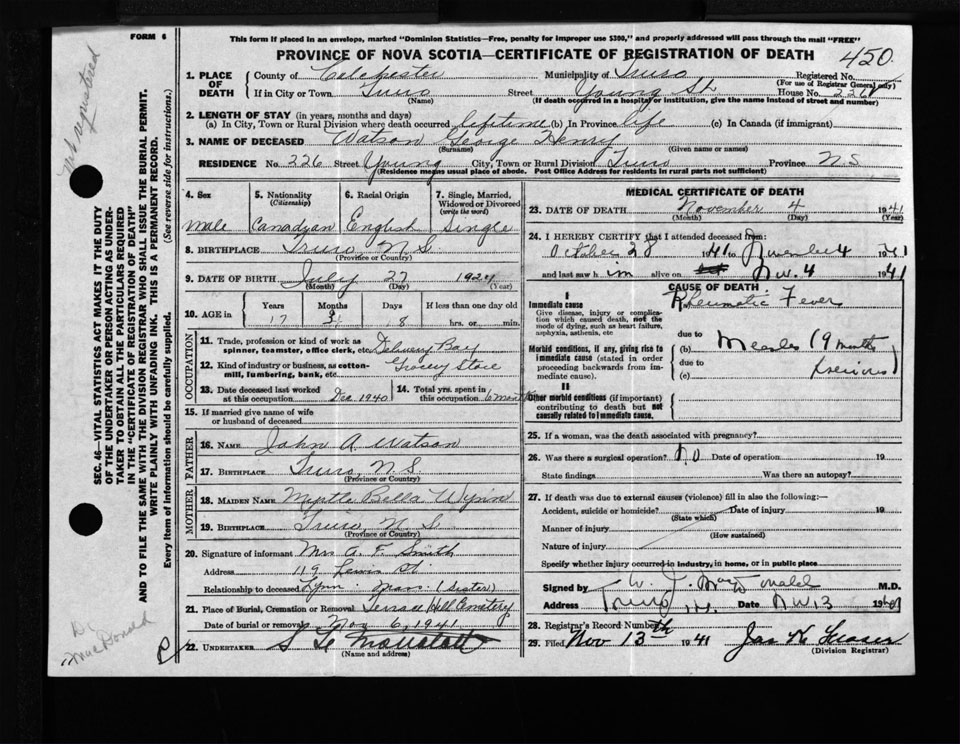 FORM 6
This form if placed in an envelope, marked "Dominion Statistics—Free, penalty for improper use $300," and properly addressed will pass through the mail "FREE"
PROVINCE OF NOVA SCOTIA—CERTIFICATE OF REGISTRATION OF DEATH
450
1. PLACE OF DEATH
County of Colchester Municipality of Truro Registered No.
(For use of Registrar General only)
If in City or Town Truro Street Young St. House No. 226
(Name) (If death occurred in a hospital or institution, give the name instead of street and number)
2. LENGTH OF STAY (in years, months and days)
(a) In City, Town or Rural Division where death occurred lifetime (b) In Province life (c) In Canada (if immigrant)
3. NAME OF DECEASED Watson George Henry
(Surname) (Given name or names)
RESIDENCE No. 226 Street Young City, Town or Rural Division Truro Province N.S
(Residence means usual place of abode. Post Office Address for residents in rural parts not sufficient)
4. Sex
male
5. Nationality (Citizenship)
Canadian
6. Racial Origin
English
7. Single, Married, Widowed or Divorced (write the word)
Single
8. BIRTHPLACE Truro, N.S.
(Province or Country)
9. DATE OF BIRTH July 27 1924
(Month) (Day) (Year)
10. AGE in
Years Months Days If less than one day old
17 3 8 hrs. or min.
OCCUPATION
11. Trade, profession or kind of work as spinner, teamster, office clerk, etc. Delivery Boy
12. Kind of industry or business, as cotton-mill, lumbering, bank, etc. Grocery Store
13. Date deceased last worked at this occupation Dec 1940
14. Total yrs. spent in this occupation 6 months
15. If married give name of wife or husband of deceased
FATHER
16. NAME John A. Watson
17. BIRTHPLACE Truro, N.S.
(Province or Country)
MOTHER
18. MAIDEN NAME Myrtle Bella Wynn
19. BIRTHPLACE Truro, N.S
(Province or Country)
20. Signature of informant Mrs A. F. Smith
Address 119 Lewis St
Relationship to deceased Lynn Mass. (Sister)
21. Place of Burial, Cremation or Removal Terrace Hill Cemetery
Date of burial or removal Nov 6, 1941
22. UNDERTAKER
(Name and address)
MEDICAL CERTIFICATE OF DEATH
23. DATE OF DEATH November 4 1941
(Month) (Day) (Year)
24. I HEREBY CERTIFY that I attended deceased from:
October 28 1941 to November 4 1941
and last saw h im alive on Nov. 4 1941
CAUSE OF DEATH
I
Immediate cause
Give disease, injury or complication which caused death, not the mode of dying, such as heart failure, asphyxia, asthenia, etc
Rheumatic Fever
due to
Morbid conditions, if any, giving rise to immediate cause (stated in order proceeding backwards from immediate cause).
(b) Measles 19 months
due to previous
(c)
II
Other morbid conditions (if important) contributing to death but not causally related to immediate cause.
25. If a woman, was the death associated with pregnancy?
26. Was there a surgical operation? No Date of operation 19
State findings Was there an autopsy?
27. If death was due to external causes (violence) fill in also the following:—
Accident, suicide or homicide? Date of injury 19
(State which)
Manner of injury
(How sustained)
Nature of injury
Specify whether injury occurred in industry, in home, or in public place
Signed by W. J. MacDonald M.D.
Address Truro N.S. Date Nov 13 1941
28. Registrar's Record Number
29. Filed Nov 13th 1941 Jas H. Fraser
(Division Registrar)
SEC. 46—VITAL STATISTICS ACT MAKES IT THE DUTY
OF THE UNDERTAKER OR PERSON ACTING AS UNDER-
TAKER TO OBTAIN ALL THE PARTICULARS REQUIRED
IN THE "CERTIFICATE OF REGISTRATION OF DEATH"
AND TO FILE THE SAME WITH THE DIVISION REGISTRAR WHO SHALL ISSUE THE BURIAL PERMIT.
WRITE PLAINLY WITH UNFADING INK. THIS IS A PERMANENT RECORD.
Every item of information should be carefully supplied. (See reverse side for instructions.)
Dr
MacDonald